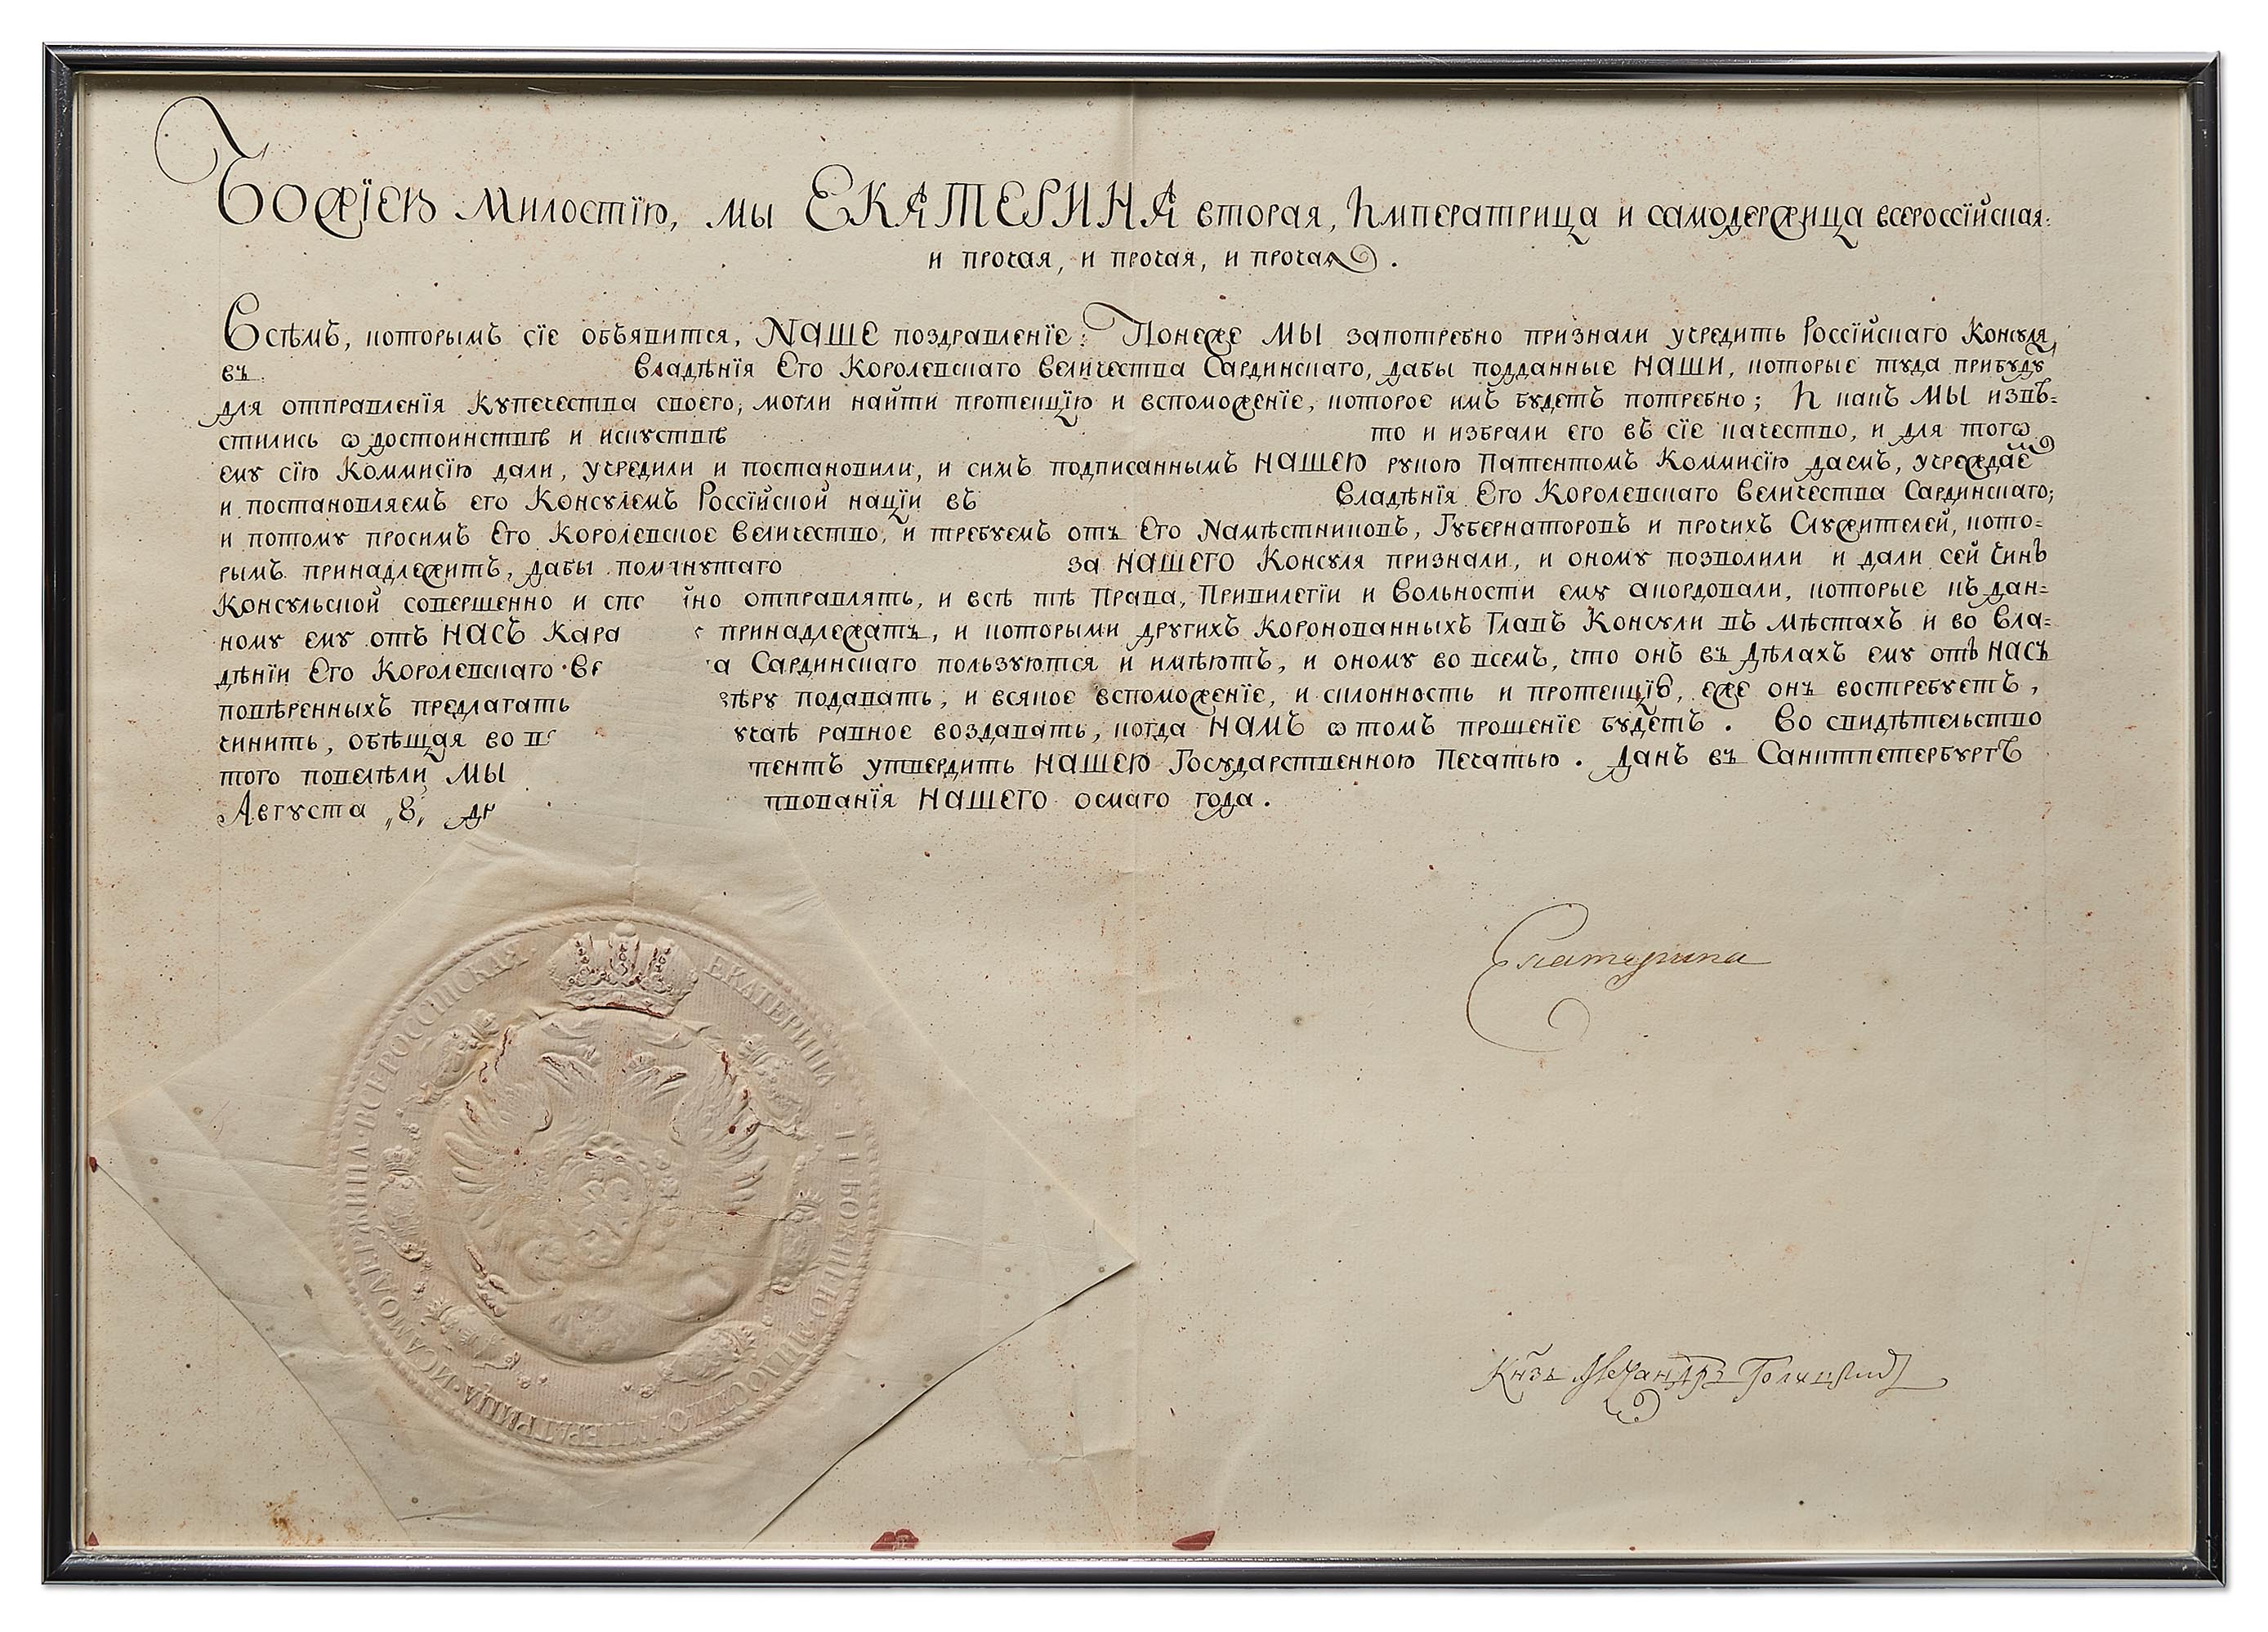 Божїею Милостїю, мы ЕКАТЕРИНА вторая, Императрица и самодержица всероссїйская:
и прочая, и прочая, и прочая.
Всѣмъ, которымъ сїе объявится, НАШЕ поздравленїе: Понеже МЫ запотребно признали учредить Россїйскаго Консуля,
въ Владѣнїя Его Королевскаго Величества Сардинскаго, дабы подданные НАШИ, которые туда прибуду
для отправленїя Купечества своего, могли найти протекцїю и вспоможенїе, которое имъ будетъ потребно; И какъ МЫ извѣ=
стились ѡ достоинствѣ и искуствѣ то и избрали его въ сїе качество, и для тогѡ
ему сїю Коммисїю дали, учредили и постановили, и симъ подписаннымъ НАШЕЮ рукою Патентомъ Коммисїю даемъ, учреждае
и постановляемъ его Консулемъ Россїйской нацїи въ Владѣнїя Его Королевскаго Величества Сардинскаго;
и потому просимъ Его Королевское Величество, и требуемъ отъ Его Намѣстниковъ, Губернаторовъ и прочихъ Служителей, кото=
рымъ принадлежитъ, дабы помянутаго за НАШЕГО Консуля признали, и оному позволили и дали сей Чинъ
Консульской совершенно и спо йно отправлять, и всѣ тѣ Права, Привилегїи и Вольности ему акордовали, которые къ дан=
ному ему отъ НАСЪ Кара принадлежатъ, и которыми другихъ Коронованныхъ Главъ Консули въ Мѣстахъ и во Вла=
дѣнїи Его Королевскаго Ве а Сардинскаго пользуются и имѣютъ, и оному во всемъ, что онъ въ Дѣлахъ ему отъ НАСЪ
повѣренныхъ предлагать вѣру подавать, и всякое вспоможенїе, и склонность и протекцїю, еже онъ востребуетъ,
чинить, обѣщая во вс учаѣ равное воздавать, когда НАМЪ ѡ томъ прошенїе будетъ. Во свидѣтельство
того повелѣли МЫ тентъ утвердить НАШЕЮ Государственною Печатью. Данъ въ Санктпетербургѣ
Августа „8„ дн твованїя НАШЕГО осмаго года.
Екатерина
Кнзь Александръ Голицынъ
ЕКАТЕРИНА · II · БОЖИЕЮ · МИЛОСТІЮ · ИМПЕРАТРИЦА · И САМОДЕРЖИЦА · ВСЕРОССІИСКАЯ ·